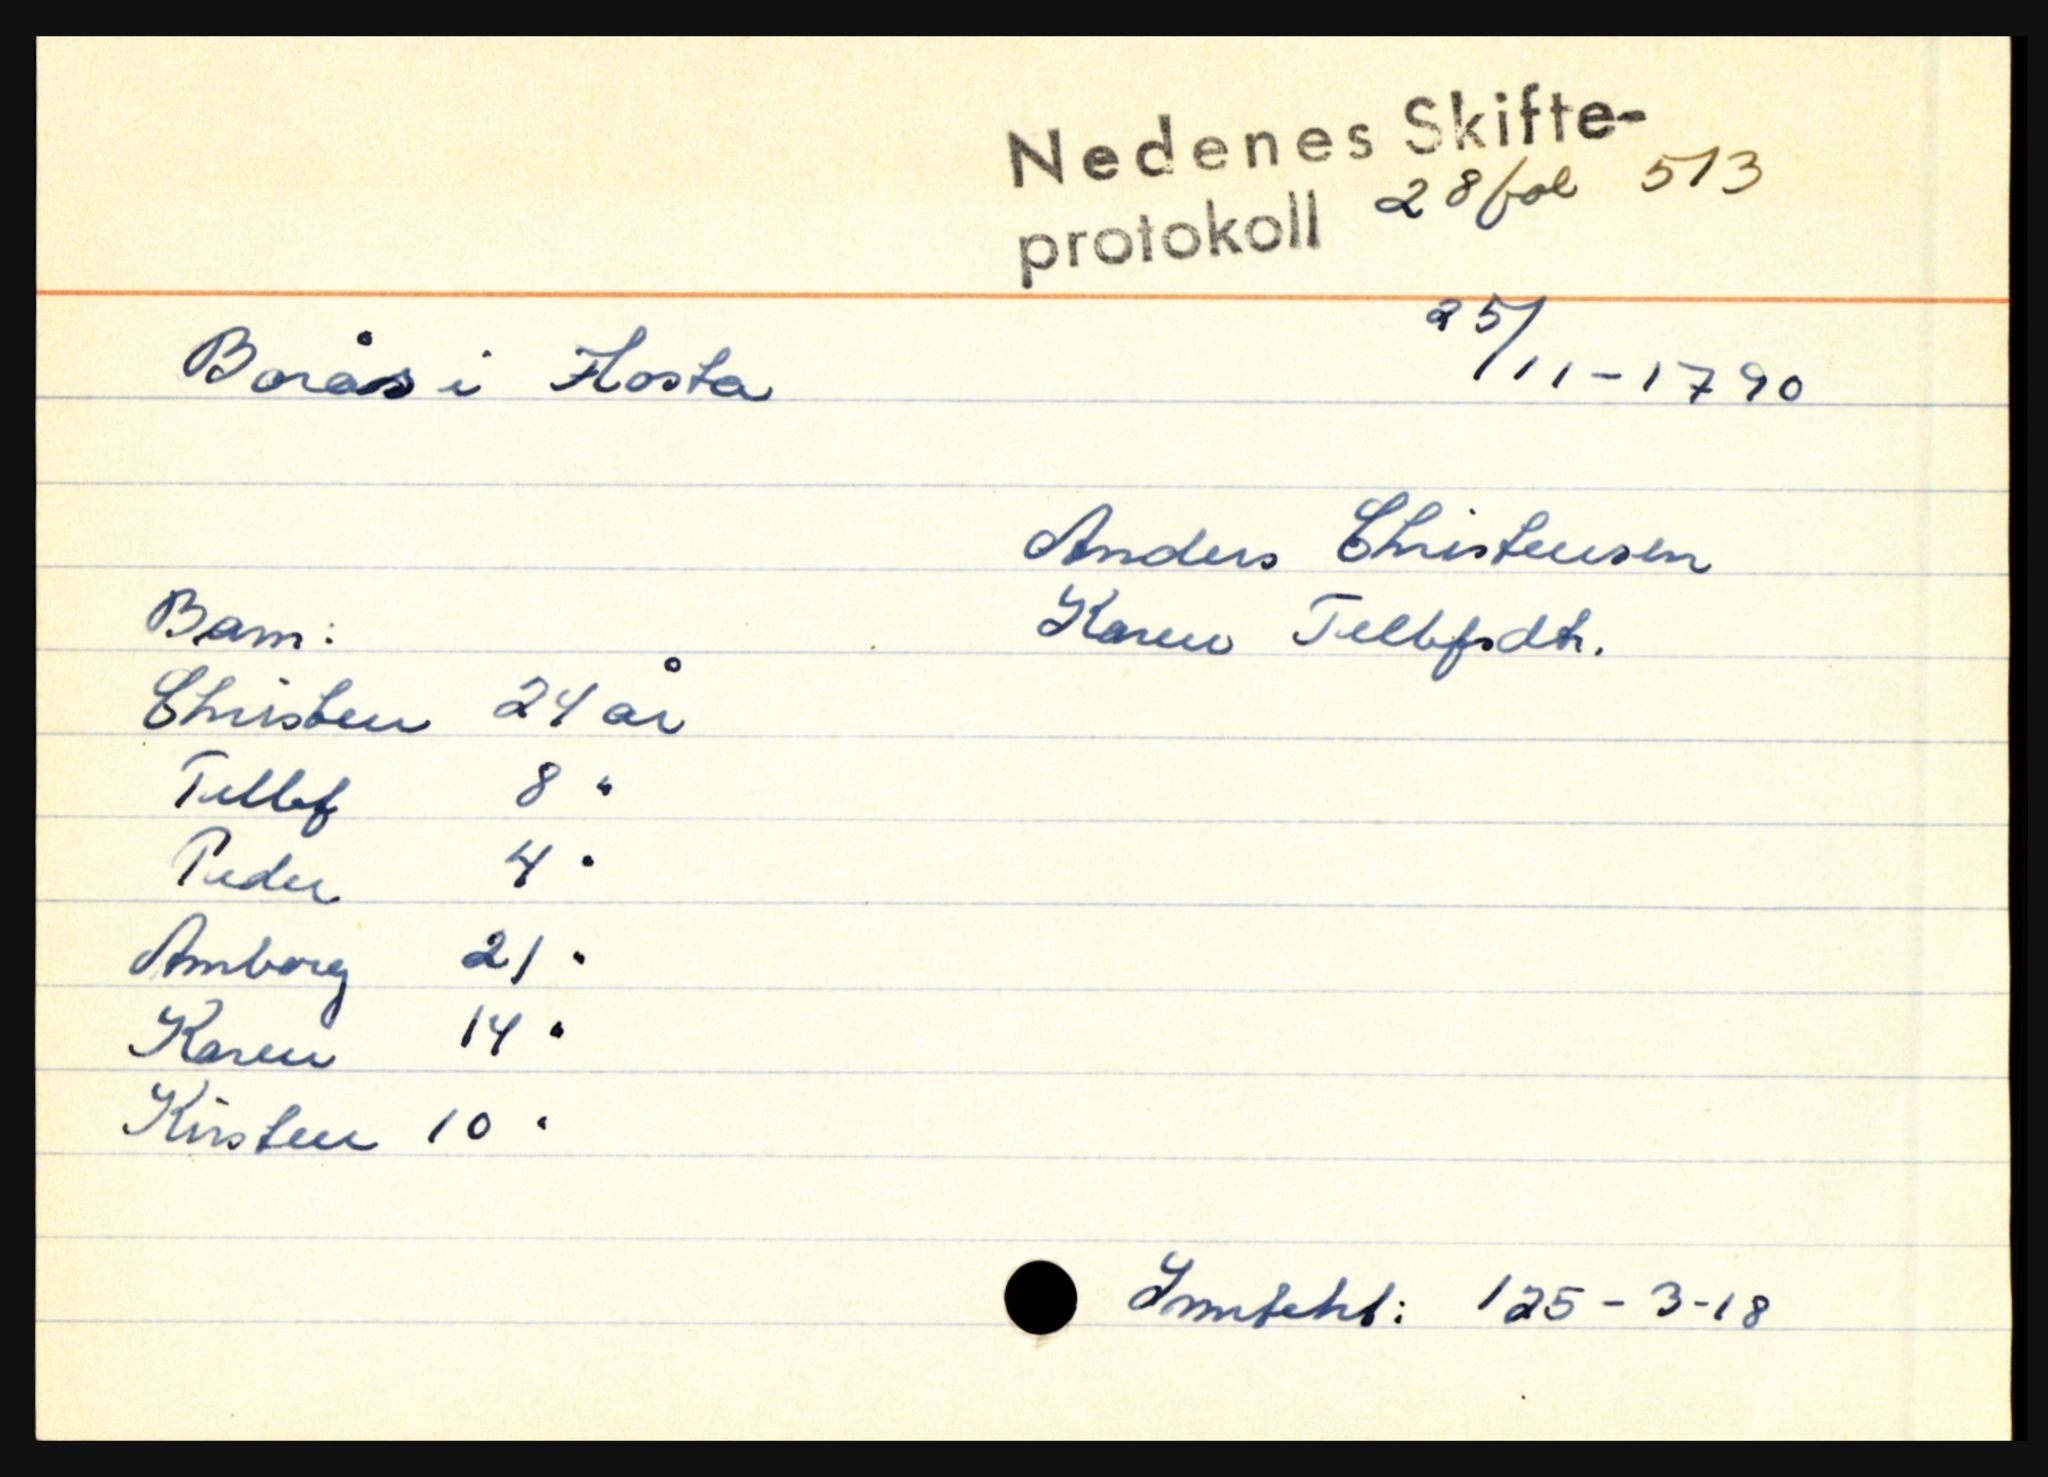 Nedenes Skifte-
protokoll 28 fol 513
Borås i Flosta 25/11-1790
Anders Christensen
Barn: Karen Tellefsdtr.
Christen 24 år
Tellef 8 "
Peder 4 "
Anborg 21 "
Karen 14 "
Kirsten 10 "
Inntekt: 125-3-18